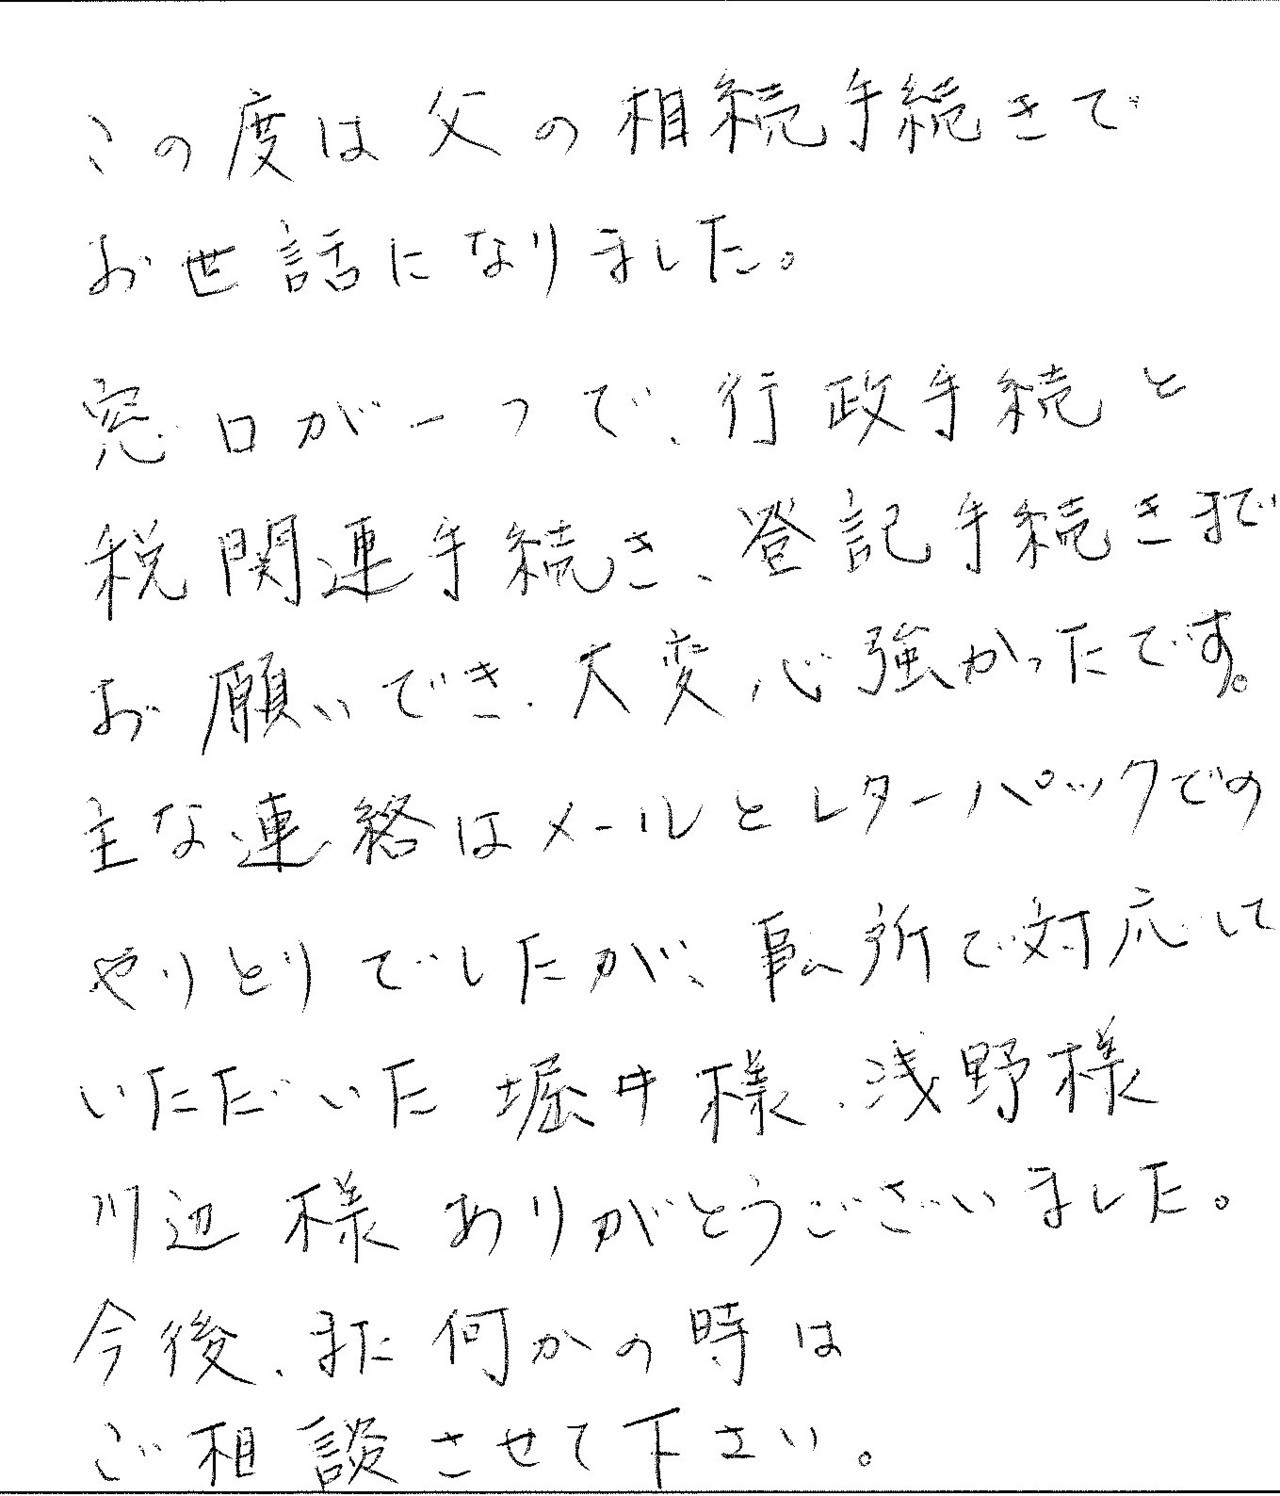 この度は父の相続手続きで
お世話になりました。
窓口が一つで、行政手続と
税関連手続き、登記手続きまで
お願いでき、大変心強かったです。
主な連絡はメールとレターパックでの
やりとりでしたが、事ム所で対応して
いただいた堀井様、浅野様
川辺様ありがとうございました。
今後、また何かの時は
ご相談させて下さい。